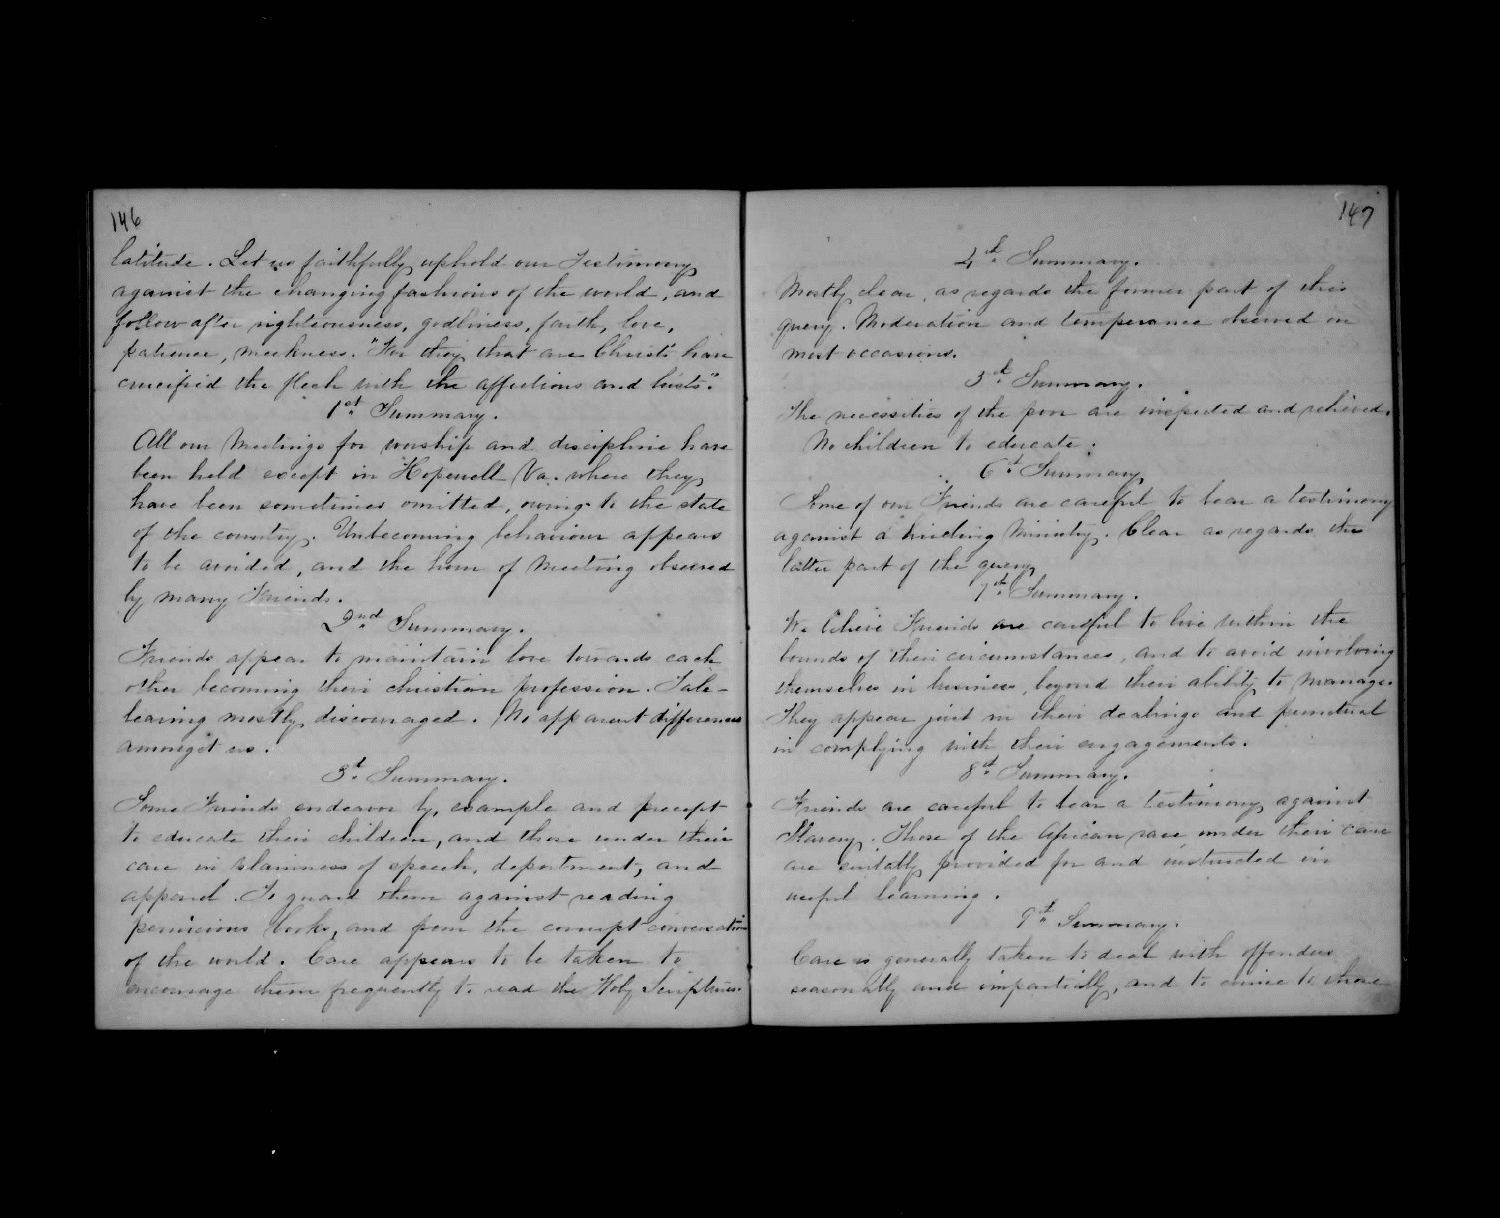 146
latitude. Let us faithfully uphold our Testimony
against the changing fashions of the world, and
follow after righteousness, godliness, faith, love,
patience, meekness. "For they that are Christ's have
crucified the flesh with the affections and lusts".
1st Summary.
All our Meetings for worship and discipline have
been held except in Hopewell Va. where they
have been sometimes omitted, owing to the state
of the country. Unbecoming behaviour appears
to be avoided, and the hour of Meeting observed
by many Friends.
2nd Summary.
Friends appear to maintain love towards each
other becoming their christian profession. Tale-
bearing mostly discouraged. No apparent differences
amongst us.
3d Summary.
Some Friends endeavor by example and precept
to educate their children, and those under their
care in plainness of speech, deportment, and
apparel. To guard them against reading
pernicious books, and from the corrupt conversation
of the world. Care appears to be taken to
encourage them frequently to read the Holy Scriptures.
147
4th Summary.
Mostly clear, as regards the former part of this
query. Moderation and temperance observed on
most occasions.
5th Summary.
The necessities of the poor are inspected and relieved.
No children to educate.
6th Summary
Some of our Friends are careful to bear a testimony
against a hireling Ministry. Clear as regards the
latter part of the query
7th Summary.
We believe Friends are careful to live within the
bounds of their circumstances, and to avoid involving
themselves in business, beyond their ability to manage.
They appear just in their dealings and punctual
in complying with their engagements.
8th Summary.
Friends are careful to bear a testimony against
Slavery. Those of the African race under their care
are suitably provided for and instructed in
useful learning.
9th Summary.
Care is generally taken to deal with offenders
seasonably and impartially, and to evince to those